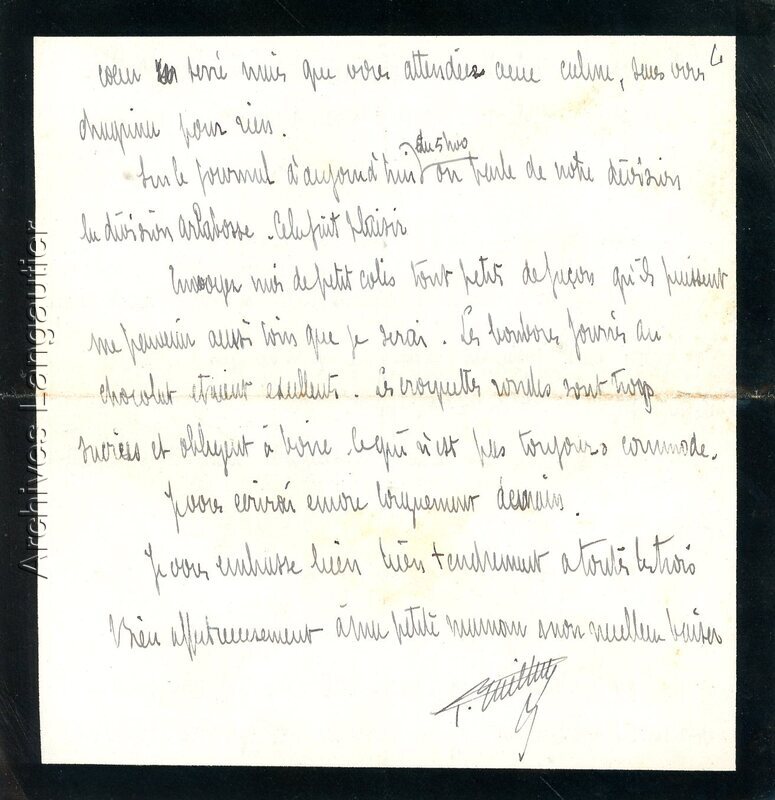 coeur serré mais que vous attendiez avec calme, sans vous
chagriner pour rien.
du 5 nov
Sur le journal d'aujourd'hui on parle de notre division
la division Arlabosse. Cela fait plaisir
Envoyez moi de petit colis tout petits de façon qu'ils puissent
me parvenir aussi loin que je serai. Les bonbons fourrés au
chocolat etaient exellents. Les croquettes rondes sont trop
sucrées et obligent à boire ce qui n'est pas toujours commode.
Je vous ecrirai encore longuement demain.
Je vous embrasse bien bien tendrement a toutes les trois
Bien affectueusement à ma petite maman mon meilleur baiser
Archives Langautier